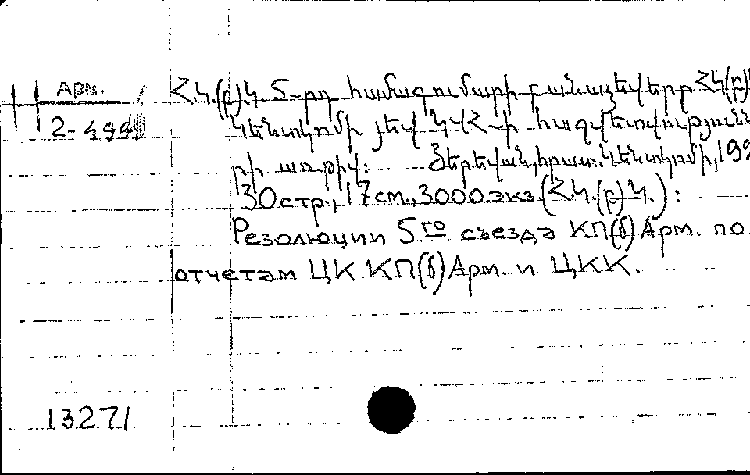 Арм.
2-4991
Հ.Կ.(բ).Կ. 5-րդ համագումարի բանաձեվերը ՀԿ(բ)
Կենտկոմի յեվ ԿՎՀ-ի հաշվետվություն
րի առթիվ: Յերեվան, հրատ. Կենտկոմի, 19
30 стр., 17 см., 3000 экз. (Հ.Կ.(բ)Կ.):
Резолюции 5го съезда КП(б) Арм. по
отчетам ЦК КП(б) Арм. и ЦКК.
13271